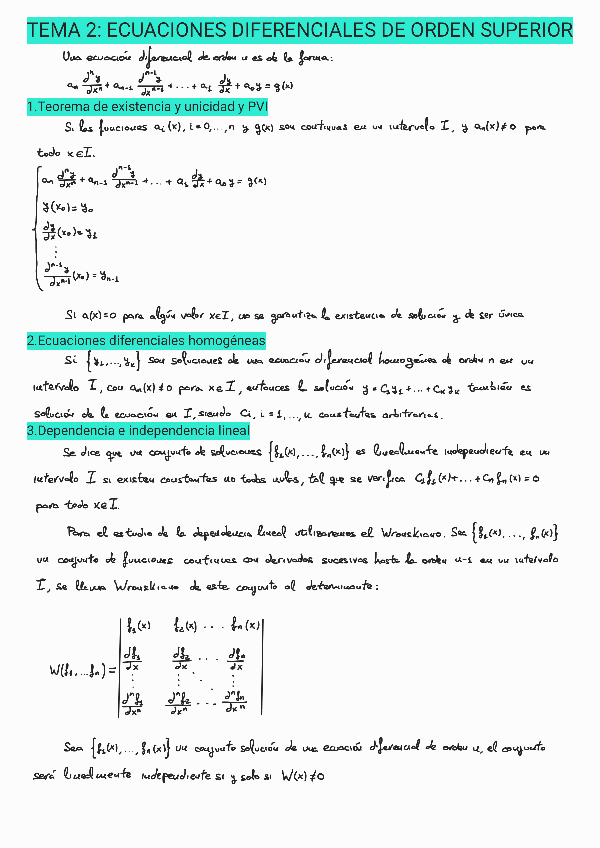 TEMA 2: ECUACIONES DIFERENCIALES DE ORDEN SUPERIOR
Una ecuación diferencial de orden n es de la forma:
aₙ dⁿy/dxⁿ + aₙ₋₁ dⁿ⁻¹y/dxⁿ⁻¹ + ... + a₁ dy/dx + a₀y = g(x)
1.Teorema de existencia y unicidad y PVI
Si las funciones aᵢ(x), i=0,...,n y g(x) son continuas en un intervalo I, y aₙ(x)≠0 para
todo x∈I.
aₙ dⁿy/dxⁿ + aₙ₋₁ dⁿ⁻¹y/dxⁿ⁻¹ + ... + a₁ dy/dx + a₀y = g(x)
y(x₀)=y₀
dy/dx(x₀)=y₁
⋮
dⁿ⁻¹y/dxⁿ⁻¹(x₀)=yₙ₋₁
Si a(x)=0 para algún valor x∈I, no se garantiza la existencia de solución y de ser única
2.Ecuaciones diferenciales homogéneas
Si {y₁,...,yₖ} son soluciones de una ecuación diferencial homogénea de orden n en un
intervalo I, con aₙ(x)≠0 para x∈I, entonces la solución y=C₁y₁+...+Cₖyₖ también es
solución de la ecuación en I, siendo Cᵢ, i=1,...,k constantes arbitrarias.
3.Dependencia e independencia lineal
Se dice que un conjunto de soluciones {f₁(x),...,fₙ(x)} es linealmente independiente en un
intervalo I si existen constantes no todas nulas, tal que se verifica C₁f₁(x)+...+Cₙfₙ(x)=0
para todo x∈I.
Para el estudio de la dependencia lineal utilizaremos el Wronskiano. Sea {f₁(x),...,fₙ(x)}
un conjunto de funciones continuas con derivadas sucesivas hasta la orden n-1 en un intervalo
I, se llama Wronskiano de este conjunto al determinante:
f₁(x) f₂(x) ... fₙ(x)
W(f₁,...fₙ) = df₁/dx df₂/dx ... dfₙ/dx
⋮ ⋮ ⋱ ⋮
dⁿf₁/dxⁿ dⁿf₂/dxⁿ ... dⁿfₙ/dxⁿ
Sea {f₁(x),...,fₙ(x)} un conjunto solución de una ecuación diferencial de orden n, el conjunto
será linealmente independiente si y solo si W(x)≠0